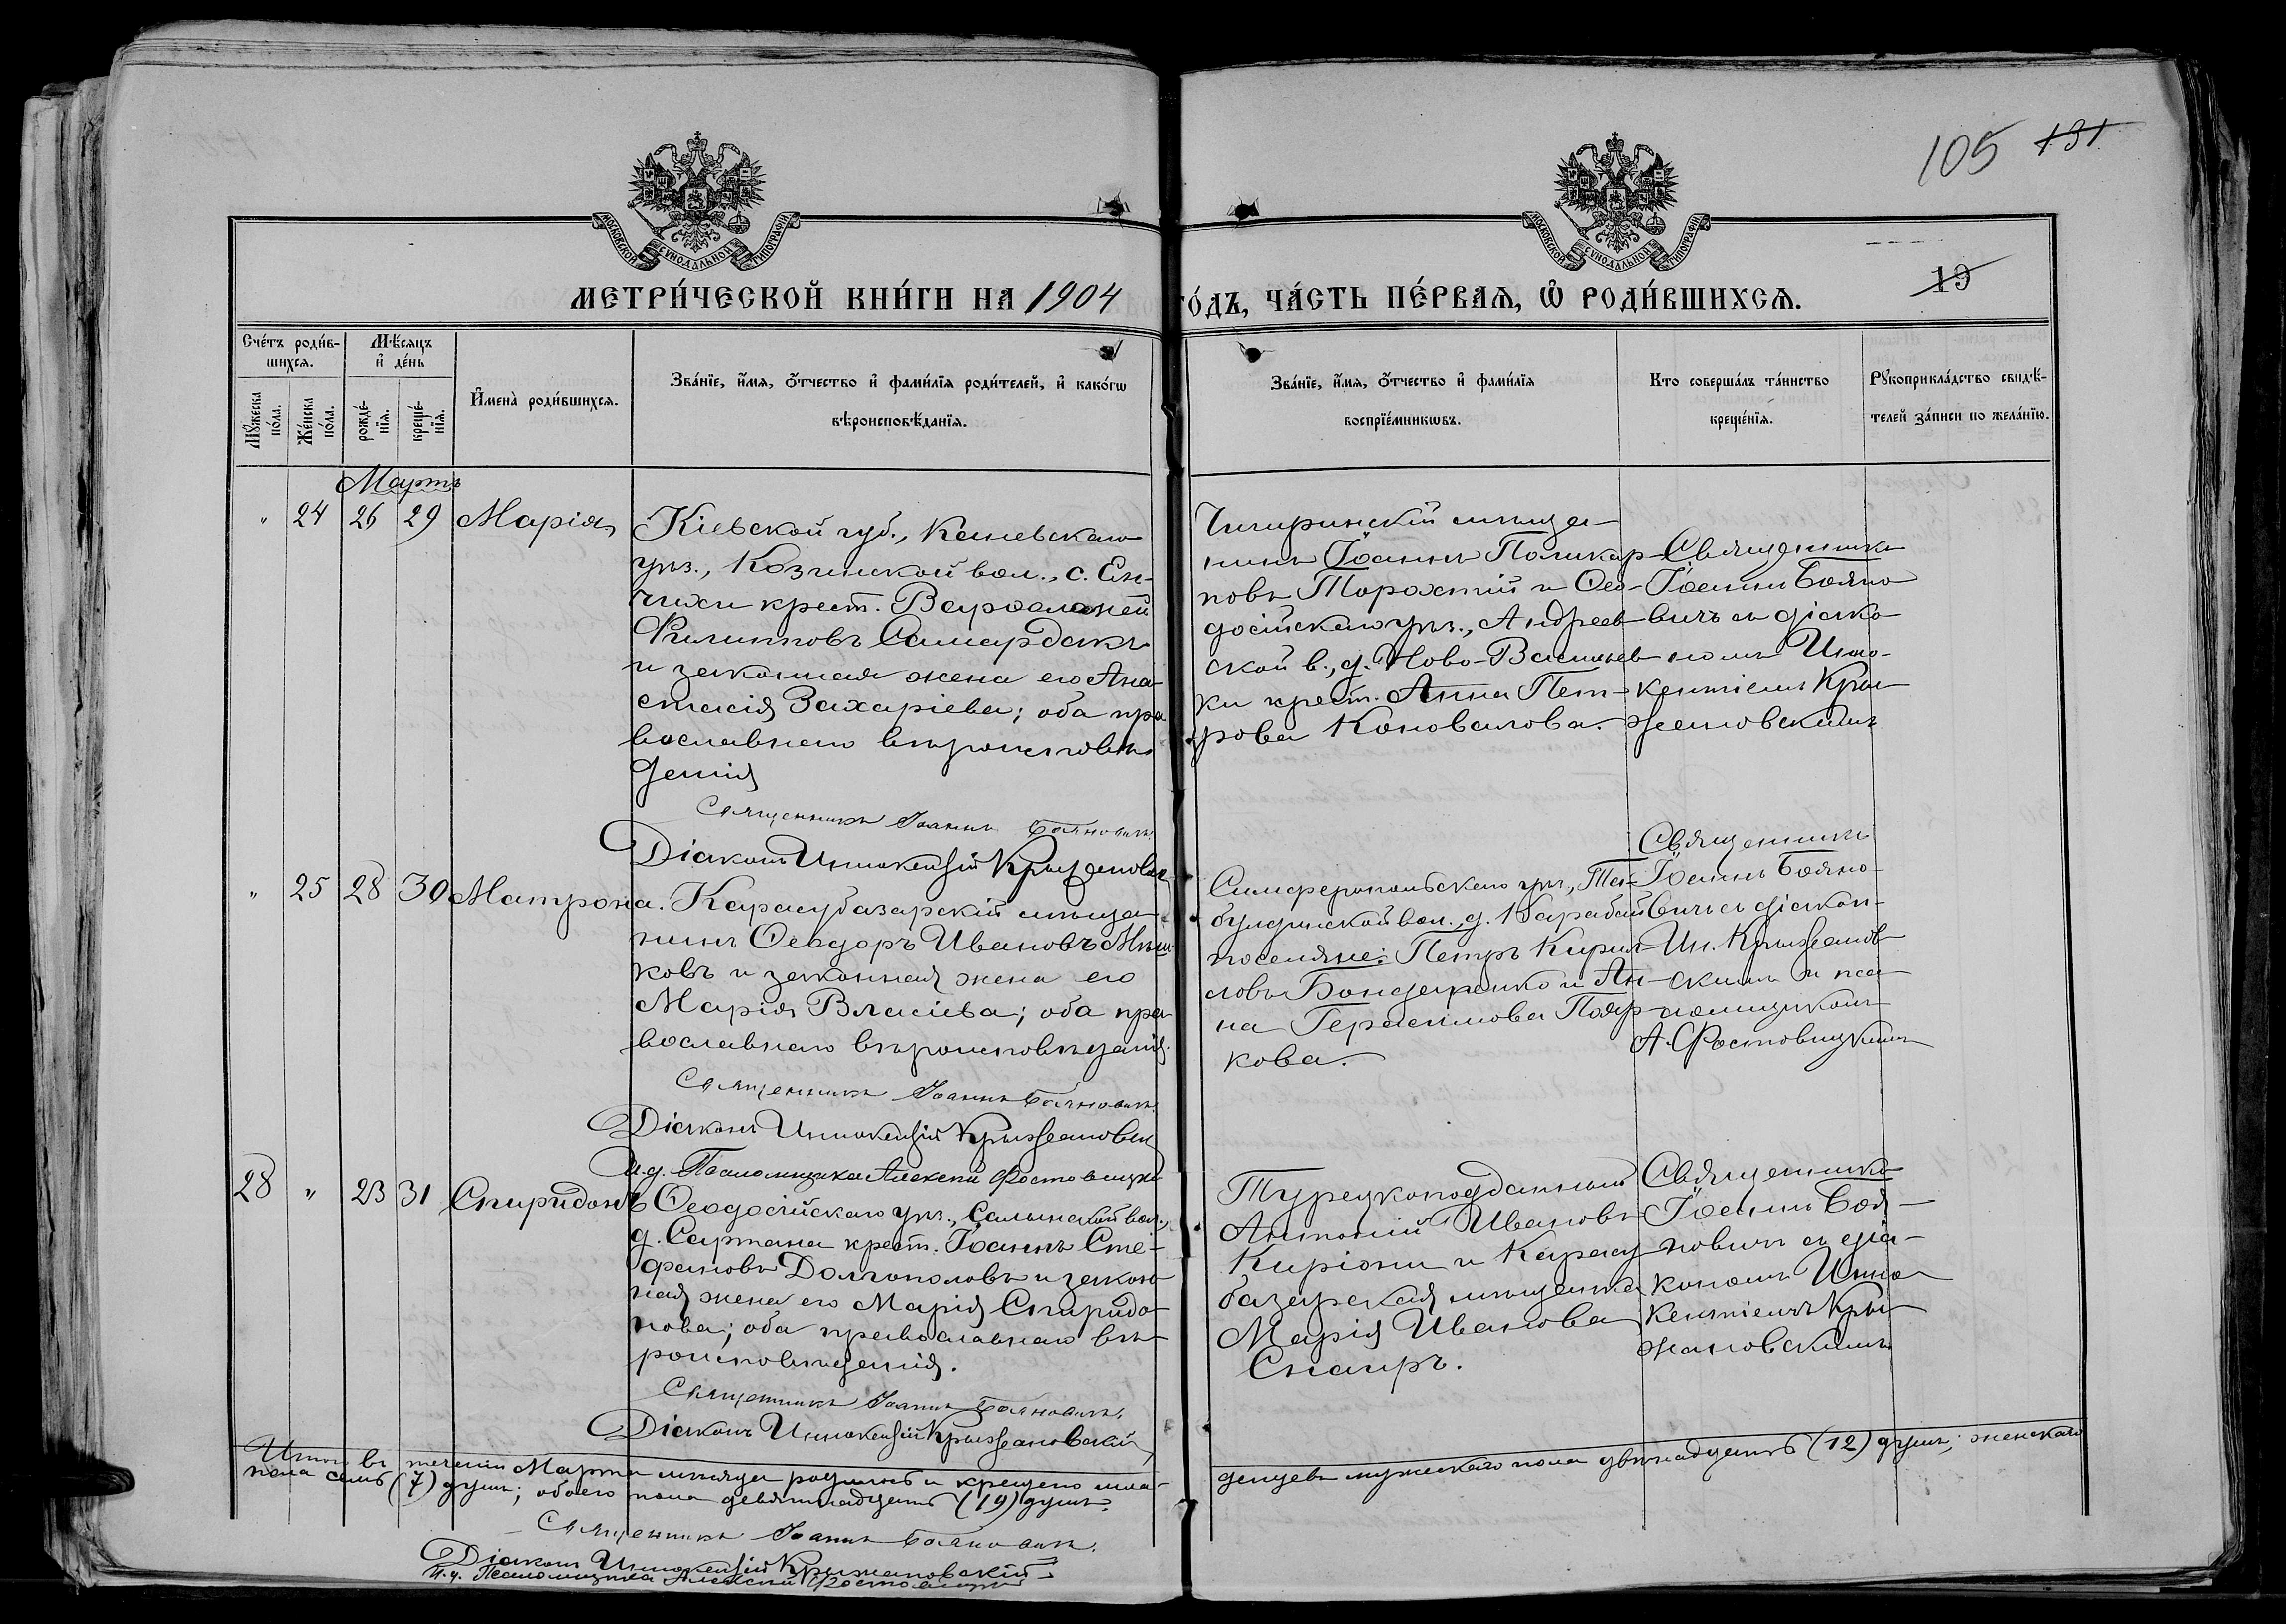 105 131
МОСКОВСКОЙ СУНОДАЛЬНОЙ ТИПОГРАФІИ
МОСКОВСКОЙ СУНОДАЛЬНОЙ ТИПОГРАФІИ
19
МЕТРИ́ЧЕСКОЙ КНИ́ГИ НА 1904
ГО́ДЪ, ЧА́СТЬ ПЕ́РВАѦ, Ѽ РОДИ́ВШИХСѦ.
Сче́тъ роди́в-
шихсѧ.
Мꙋжеска по́ла.
Же́нска по́ла.
Мѣ́сѧцъ
и҆ де́нь
рожде́-
нїѧ.
креще́-
нїѧ.
И҆мена̀ роди́вшихсѧ.
Зва́нїе, и҆́мѧ, ѻ҆́тчество и҆ фами́лїѧ роди́телей, и҆ како́гѡ
вѣроисповѣ́данїѧ.
Зва́нїе, и҆́мѧ, ѻ҆́тчество и҆ фами́лїѧ
воспрїе́мникѡвъ.
Кто соверша́лъ та́инство
креще́нїѧ.
Рꙋкоприкла́дство свидѣ́-
телей за́писи по жела́нїю.
Мартъ
" 24 26 29 Марія
Кіевской губ., Каневскаго
уѣз., Козинской вол., с. Ен-
чихи крест. Варѳоломей
Филипповъ Самардакъ
и законная жена его Ана-
стасія Захаріева; оба пра-
вославнаго вѣроисповѣ-
данія
Священникъ Іоаннъ Бояновичъ
Діаконъ Иннокентій Крыжановскій
Чигиринскій мѣща-
нинъ Іоаннъ Поликар-
повъ Торохтій и Ѳео-
досійскаго уѣз., Андреев-
ской в., д. Ново-Васильев-
ки крест. Анна Пет-
рова Коновалова.
Священникъ
Іоаннъ Бояно-
вичъ съ діако-
номъ Инно-
кентіемъ Кры-
жановскимъ
" 25 28 30 Матрона.
Карасубазарскій мѣща-
нинъ Ѳеодоръ Ивановъ
ковъ и законная жена его
Марія Власіева; оба пра-
вославнаго вѣроисповѣданія.
Священникъ Іоаннъ Бояновичъ
Діаконъ Иннокентій Крыжановскій
И.д. Псаломщика Алексій Фостовицкій
Симферопольскаго уѣз., Та-
булдинской вол., д. Карабай
поселяне: Петръ Кирил-
ловъ Бондаренко и Ан-
на Герасимова Пояр-
кова.
Священникъ
Іоаннъ Бояно-
вичъ съ діакон.
Ин. Крыжанов-
скимъ и пса-
ломщикомъ
А. Фостовицкимъ
28 " 23 31 Спиридонъ
Ѳеодосійскаго уѣз., Салынской вол.,
д. Сартана крест. Іоаннъ Сте-
фановъ Долгополовъ и закон-
ная жена его Марія Спиридо-
нова; оба православнаго вѣ-
роисповѣданія.
Священникъ Іоаннъ Бояновичъ.
Діаконъ Иннокентій Крыжановскій
Турецкоподданный
Антоній Ивановъ
Киріони и Карасу-
базарская мѣщанка
Марія Иванова
Снапръ.
Священникъ
Іоаннъ Боя-
новичъ съ діа-
кономъ Инно-
кентіемъ Кры-
жановскимъ
Итого въ теченіи Марта мѣсяца родилось и крещено мла-
денцевъ мужескаго пола двѣнадцать (12) душъ; женскаго
пола семь (7) душъ; обоего пола девятнадцать (19) душъ.
Священникъ Іоаннъ Бояновичъ.
Діаконъ Иннокентій Крыжановскій
И.д. Псаломщика Алексій Фостовицкій